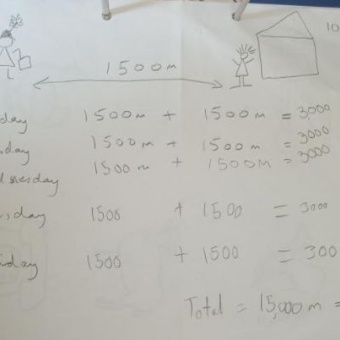 10
1500m
day 1500m + 1500m = 3000
day 1500m + 1500m = 3000
dnesday 1500m + 1500m = 3000
sday 1500 + 1500 = 3000
day 1500 + 1500 = 300
Total = 15,000m =